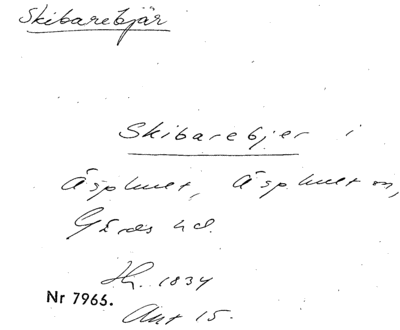 Skibarebjär
Skibarebjer i
Äsphult, Äsphult sn,
Gärds hd.
Hh. 1834
Nr 7965.
Akt 15.